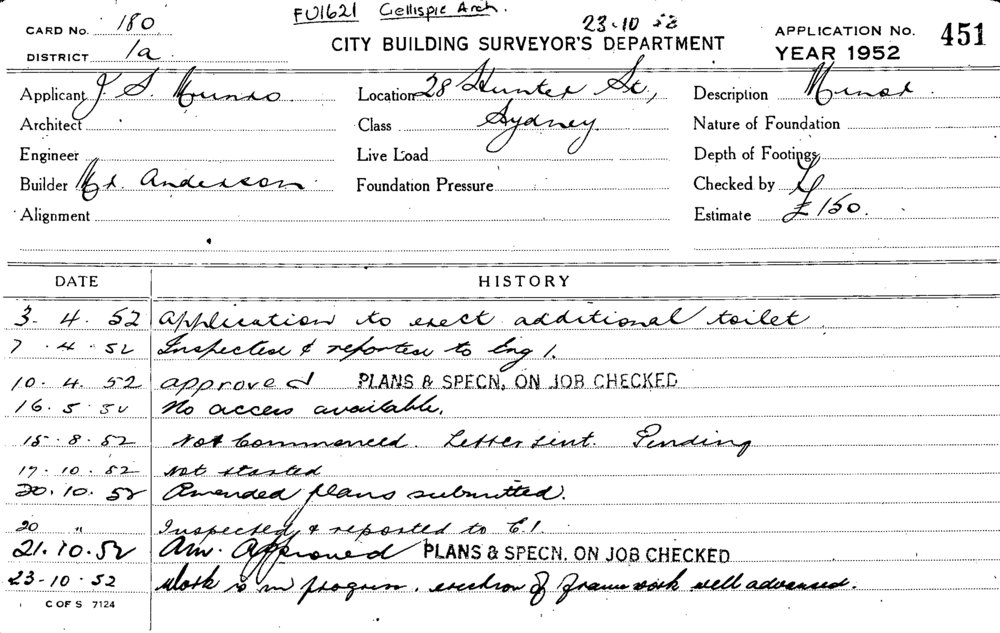 FU1621 Gellispie Arch.
CARD No. 180
23-10 52
APPLICATION No. 451
DISTRICT 1a
CITY BUILDING SURVEYOR'S DEPARTMENT
YEAR 1952
Applicant J. S. Munro
Location 28 Hunter St.,
Description Minor
Architect
Class Sydney
Nature of Foundation
Engineer
Live Load
Depth of Footings
Builder Mr. Anderson
Foundation Pressure
Checked by
Alignment
Estimate £150.
DATE HISTORY
3. 4. 52 Application to erect additional toilet
7. 4. 52 Inspected & reported to Eng 1.
10. 4. 52 approved PLANS & SPECN. ON JOB CHECKED
16. 5. 52 No access available.
15. 8. 52 Not Commenced. Letter sent. Pending
17. 10. 52 Not started
20. 10. 52 Amended plans submitted.
20 " Inspected & reported to E.1.
21. 10. 52 Am. Approved PLANS & SPECN. ON JOB CHECKED
23-10. 52 Work is in progress, erection of frame work well advanced.
C OF S 7124